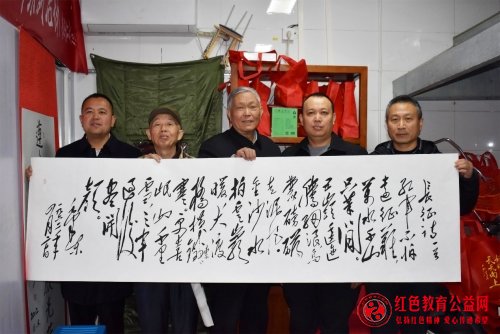 长征诗一首
红军不怕
远征难
万水千山
只等闲
五岭逶迤
腾细浪乌
蒙磅礴
走泥丸
金沙水
拍云崖
暖大渡
桥横铁索
寒更喜
岷山千里
雪三军
过后
尽开
颜
红色教育公益网
弘扬红色精神 爱心传递希望